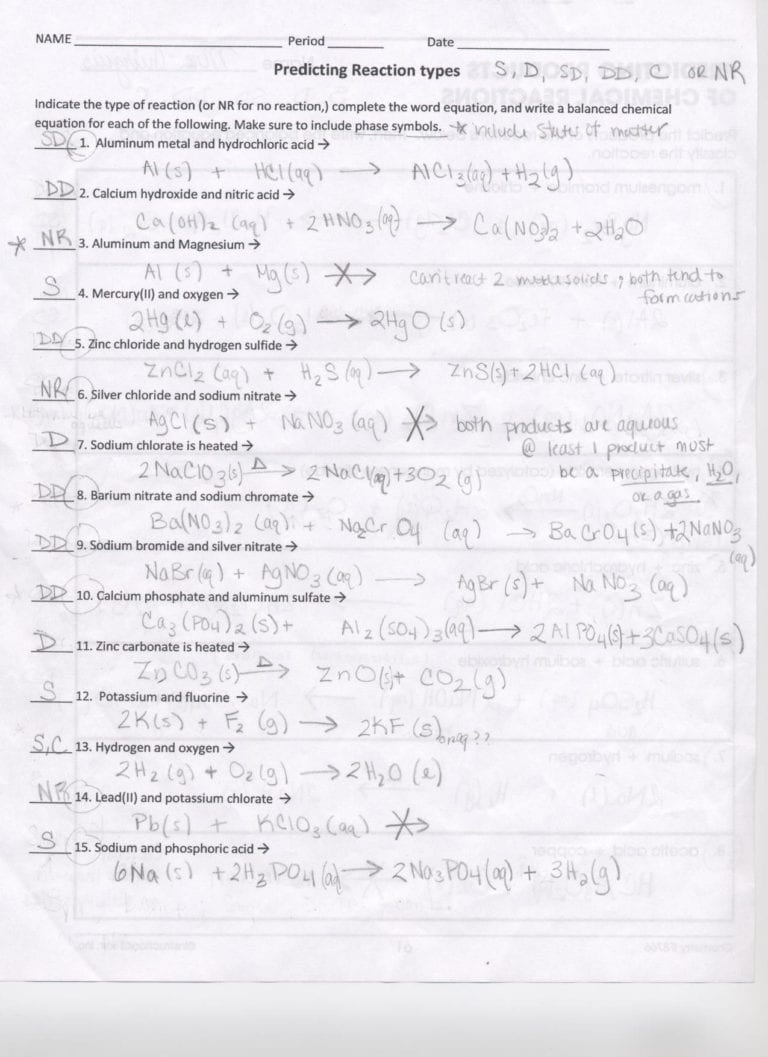 NAME Period Date
Predicting Reaction types S, D, SD, DD, C OR NR
Indicate the type of reaction (or NR for no reaction,) complete the word equation, and write a balanced chemical
equation for each of the following. Make sure to include phase symbols. * include state of matter
SD 1. Aluminum metal and hydrochloric acid →
Al(s) + HCl(aq) → AlCl3(aq) + H2(g)
DD 2. Calcium hydroxide and nitric acid →
Ca(OH)2 (aq) + 2HNO3(aq) → Ca(NO3)2 + 2H2O
* NR 3. Aluminum and Magnesium →
Al (s) + Mg(s) → can't react 2 solids, both tend to
form cations
S 4. Mercury(II) and oxygen →
2Hg(l) + O2(g) → 2HgO (s)
DD 5. Zinc chloride and hydrogen sulfide →
ZnCl2 (aq) + H2S (aq) → ZnS(s) + 2HCl (aq)
NR 6. Silver chloride and sodium nitrate →
AgCl(s) + NaNO3 (aq) → both products are aqueous
@ least 1 product must
D 7. Sodium chlorate is heated →
2NaClO3(s) Δ→ 2NaCl(aq) + 3O2(g) be a precipitate, H2O,
or a gas
DD 8. Barium nitrate and sodium chromate →
Ba(NO3)2 (aq) + Na2CrO4 (aq) → BaCrO4(s) + 2NaNO3
(aq)
DD 9. Sodium bromide and silver nitrate →
NaBr(aq) + AgNO3(aq) → AgBr(s) + NaNO3 (aq)
DD 10. Calcium phosphate and aluminum sulfate →
Ca3(PO4)2(s) + Al2(SO4)3(aq) → 2AlPO4(s) + 3CaSO4(s)
D 11. Zinc carbonate is heated →
ZnCO3(s) Δ→ ZnO(s) + CO2(g)
S 12. Potassium and fluorine →
2K(s) + F2 (g) → 2KF (s) or aq??
S,C 13. Hydrogen and oxygen →
2H2(g) + O2(g) → 2H2O (l)
NR 14. Lead(II) and potassium chlorate →
Pb(s) + KClO3(aq) →
S 15. Sodium and phosphoric acid →
6Na(s) + 2H3PO4(aq → 2Na3PO4(aq) + 3H2(g)